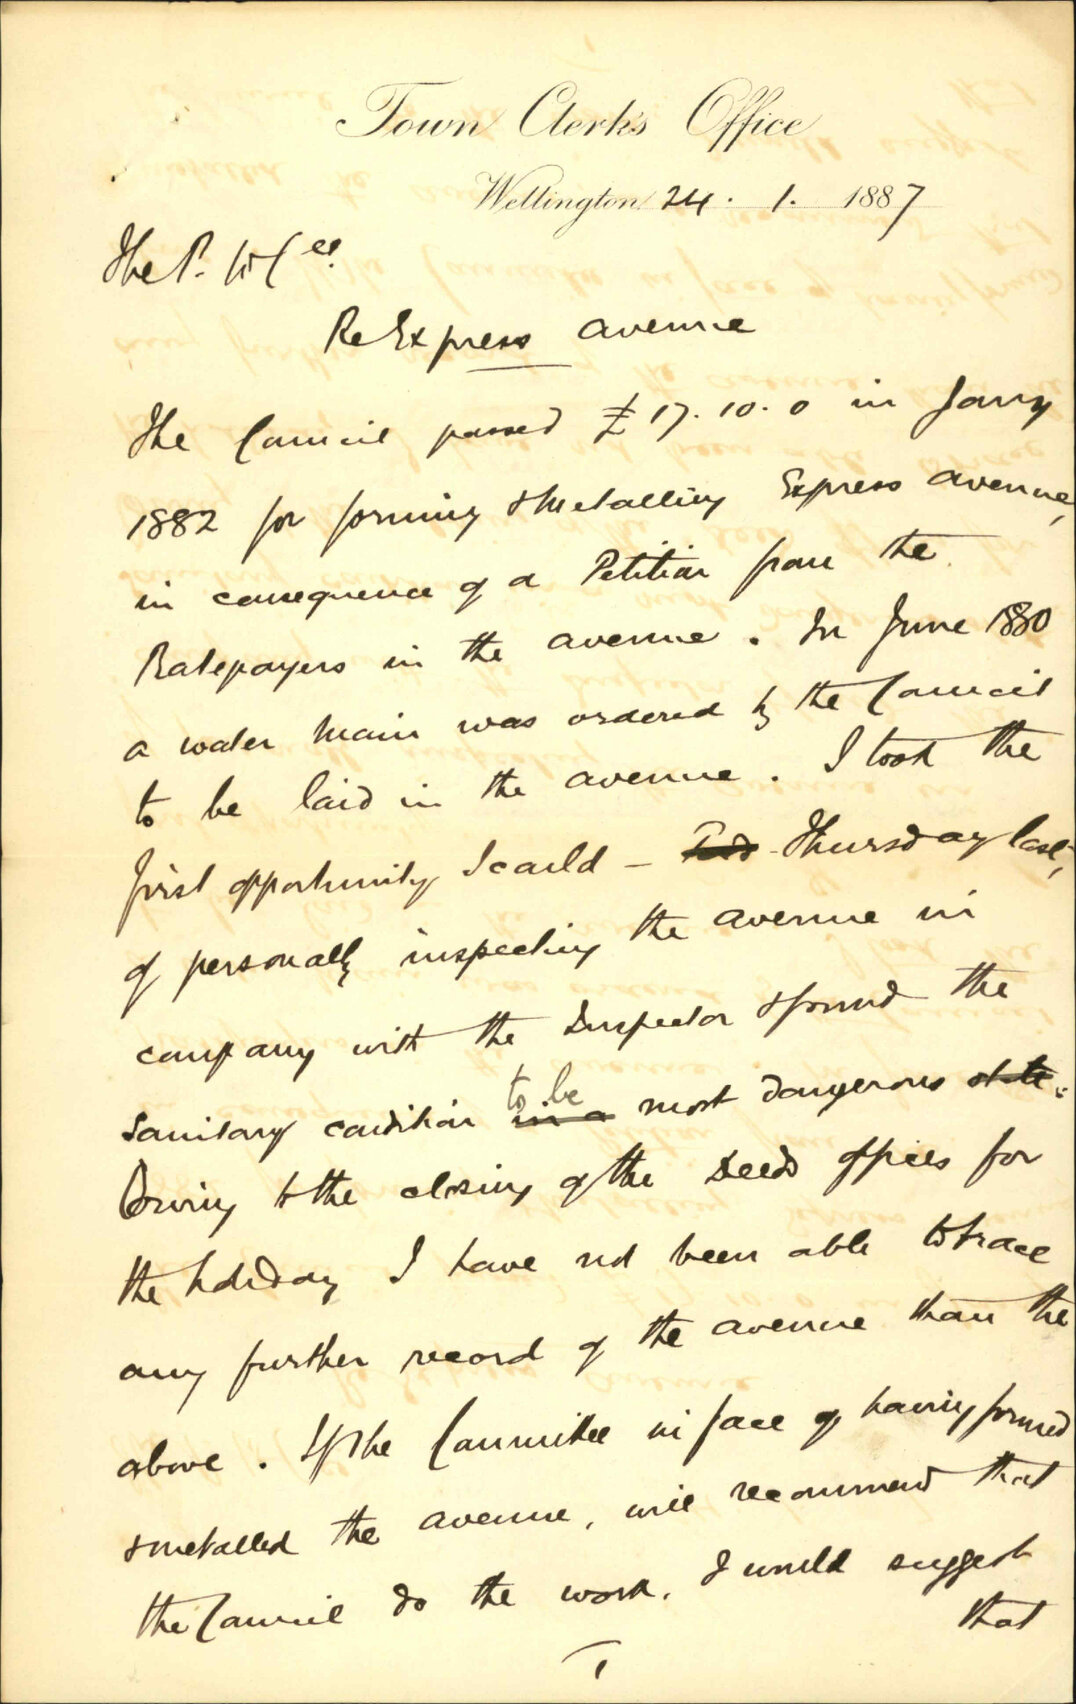 Town Clerk's Office
Wellington 24. 1. 1887
The P. W Cee.
Re Express avenue
The Council passed £17.10.0 in Jany
1882 for forming & Metalling Express avenue,
in consequence of a Petition from the
Ratepayers in the avenue. In June 1880
a water main was ordered by the Council
to be laid in the avenue. I took the
first opportunity I could – Thursday last,
of personally inspecting the avenue in
company with the Inspector & found the
to be
Sanitary condition in a most dangerous state.
Owing to the closing of the Deeds offices for
the holiday I have not been able to trace
any further record of the avenue than the
above. If the Committee in face of having formed
& metalled the avenue, will recommend that
the Council do the work. I would suggest
that